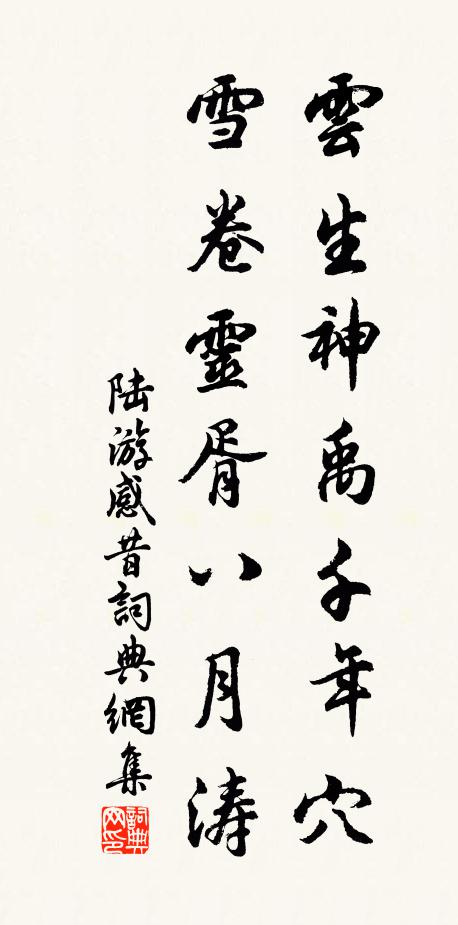 雲生神禹千年穴
雪卷靈胥八月濤
陆游感昔詞典網集
詞典網印